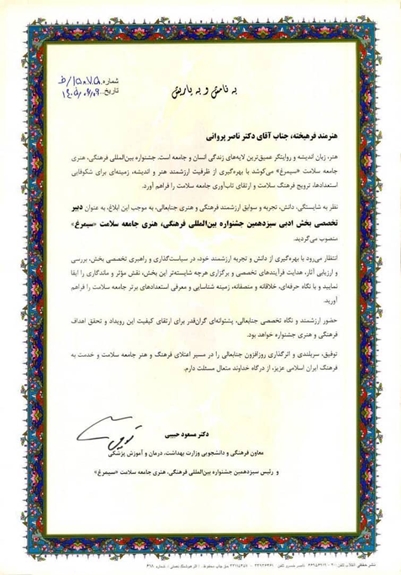 به نامش و به یاریش
شماره ۱۵۰۷۵/ط
تاریخ ۱۴۰۵/۰۲/۰۹
هنرمند فرهیخته، جناب آقای دکتر ناصر پروانی
هنر، زبان اندیشه و روایتگر عمیق‌ترین لایه‌های زندگی انسان و جامعه است. جشنواره بین‌المللی فرهنگی، هنری
جامعه سلامت «سیمرغ» می‌کوشد با بهره‌گیری از ظرفیت ارزشمند هنر و اندیشه، زمینه‌ای برای شکوفایی
استعدادها، ترویج فرهنگ سلامت و ارتقای تاب‌آوری جامعه سلامت را فراهم آورد.
نظر به شایستگی، دانش، تجربه و سوابق ارزشمند فرهنگی و هنری جنابعالی، به موجب این ابلاغ، به عنوان دبیر
تخصصی بخش ادبی سیزدهمین جشنواره بین‌المللی فرهنگی، هنری جامعه سلامت «سیمرغ»
منصوب می‌گردید.
انتظار می‌رود با بهره‌گیری از دانش و تجربه ارزشمند خود، در سیاست‌گذاری و راهبری تخصصی بخش، بررسی
و ارزیابی آثار، هدایت فرآیندهای تخصصی و برگزاری هرچه شایسته‌تر این بخش، نقش مؤثر و ماندگاری را ایفا
نمایید و با نگاه حرفه‌ای، خلاقانه و منصفانه، زمینه شناسایی و معرفی استعدادهای برتر جامعه سلامت را فراهم
آورید.
حضور ارزشمند و نگاه تخصصی جنابعالی، پشتوانه‌ای گران‌قدر برای ارتقای کیفیت این رویداد و تحقق اهداف
فرهنگی و هنری جشنواره خواهد بود.
توفیق، سربلندی و اثرگذاری روزافزون جنابعالی را در مسیر اعتلای فرهنگ و هنر جامعه سلامت و خدمت به
فرهنگ ایران اسلامی عزیز، از درگاه خداوند متعال مسئلت دارم.
دکتر مسعود حبیبی
معاون فرهنگی و دانشجویی وزارت بهداشت، درمان و آموزش پزشکی
و رئیس سیزدهمین جشنواره بین‌المللی فرهنگی، هنری جامعه سلامت «سیمرغ»